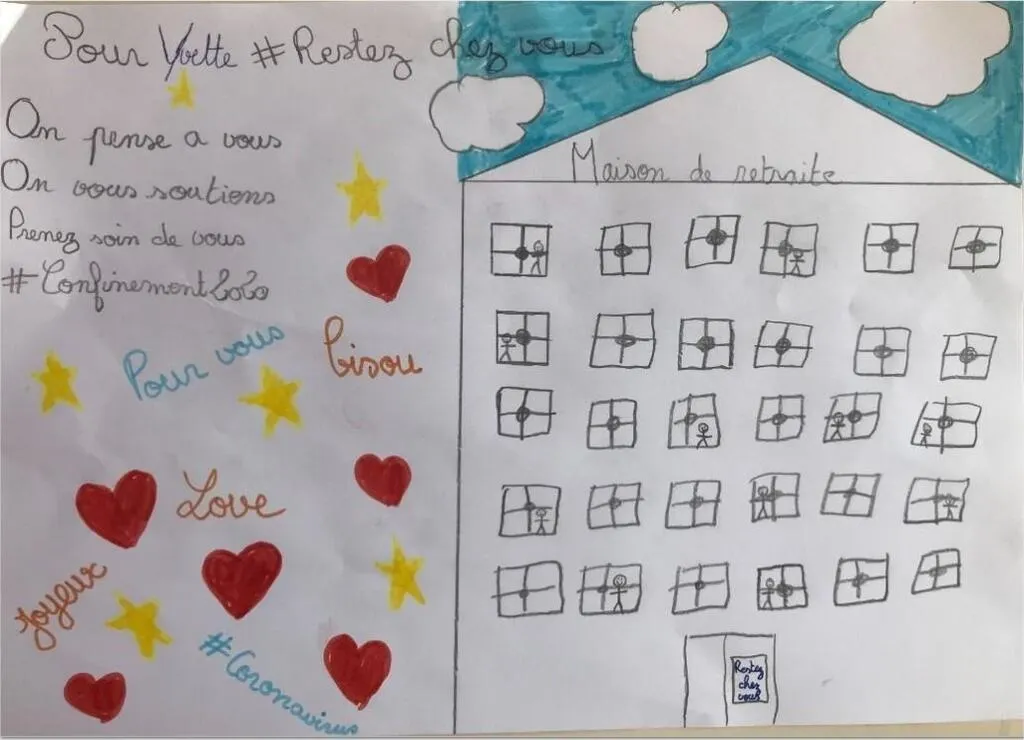 Pour Yvette #Restez chez vous
On pense a vous
On vous soutiens
Prenez soin de vous
#Confinement2020
Pour vous
bisou
Love
Joyeux
#Coronavirus
Maison de retraite
Restez
chez
vous